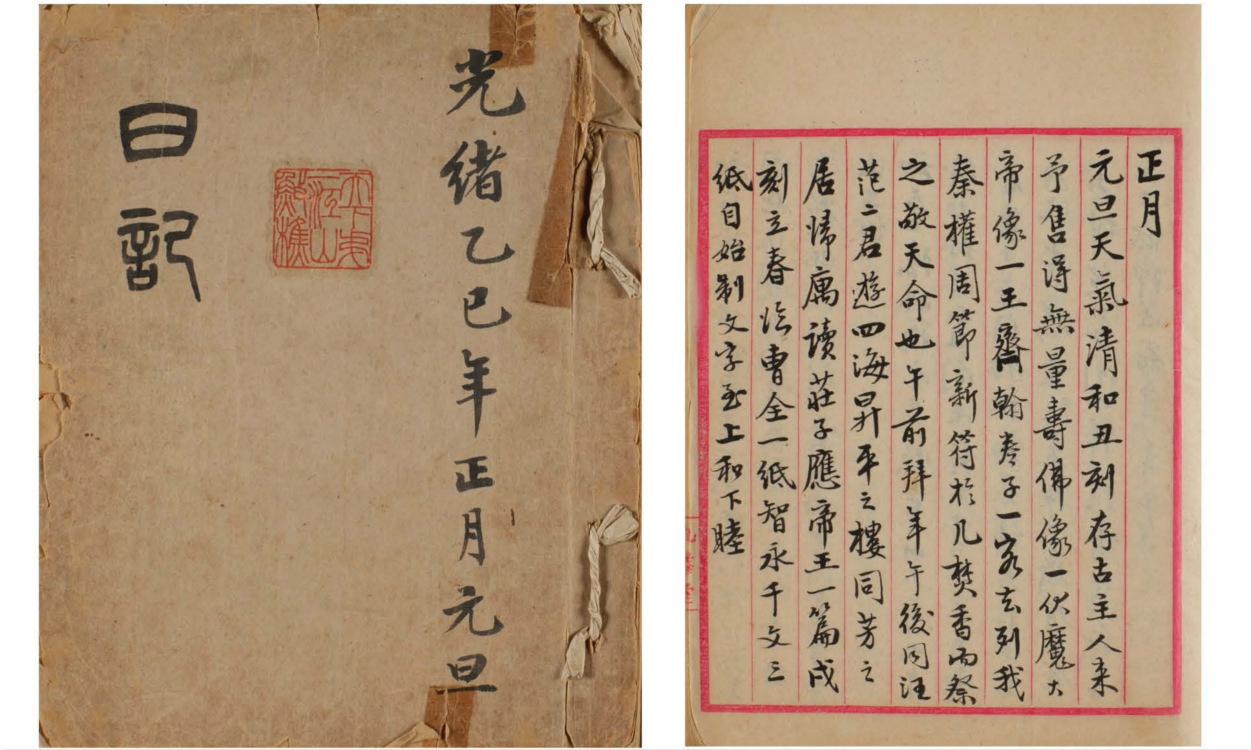 光緒乙巳年正月元旦
日記
正月
元旦天氣清和丑刻存古主人来
予售得無量壽佛像一伏魔大
帝像一王齋翰卷子一客去列我
秦權周節新符於几焚香而祭
之敬天命也午前拜年午後同汪
范二君遊四海昇平之樓同芳之
居歸寓讀莊子應帝王一篇戌
刻立春臨曹全一紙智永千文三
紙自始制文字至上和下睦